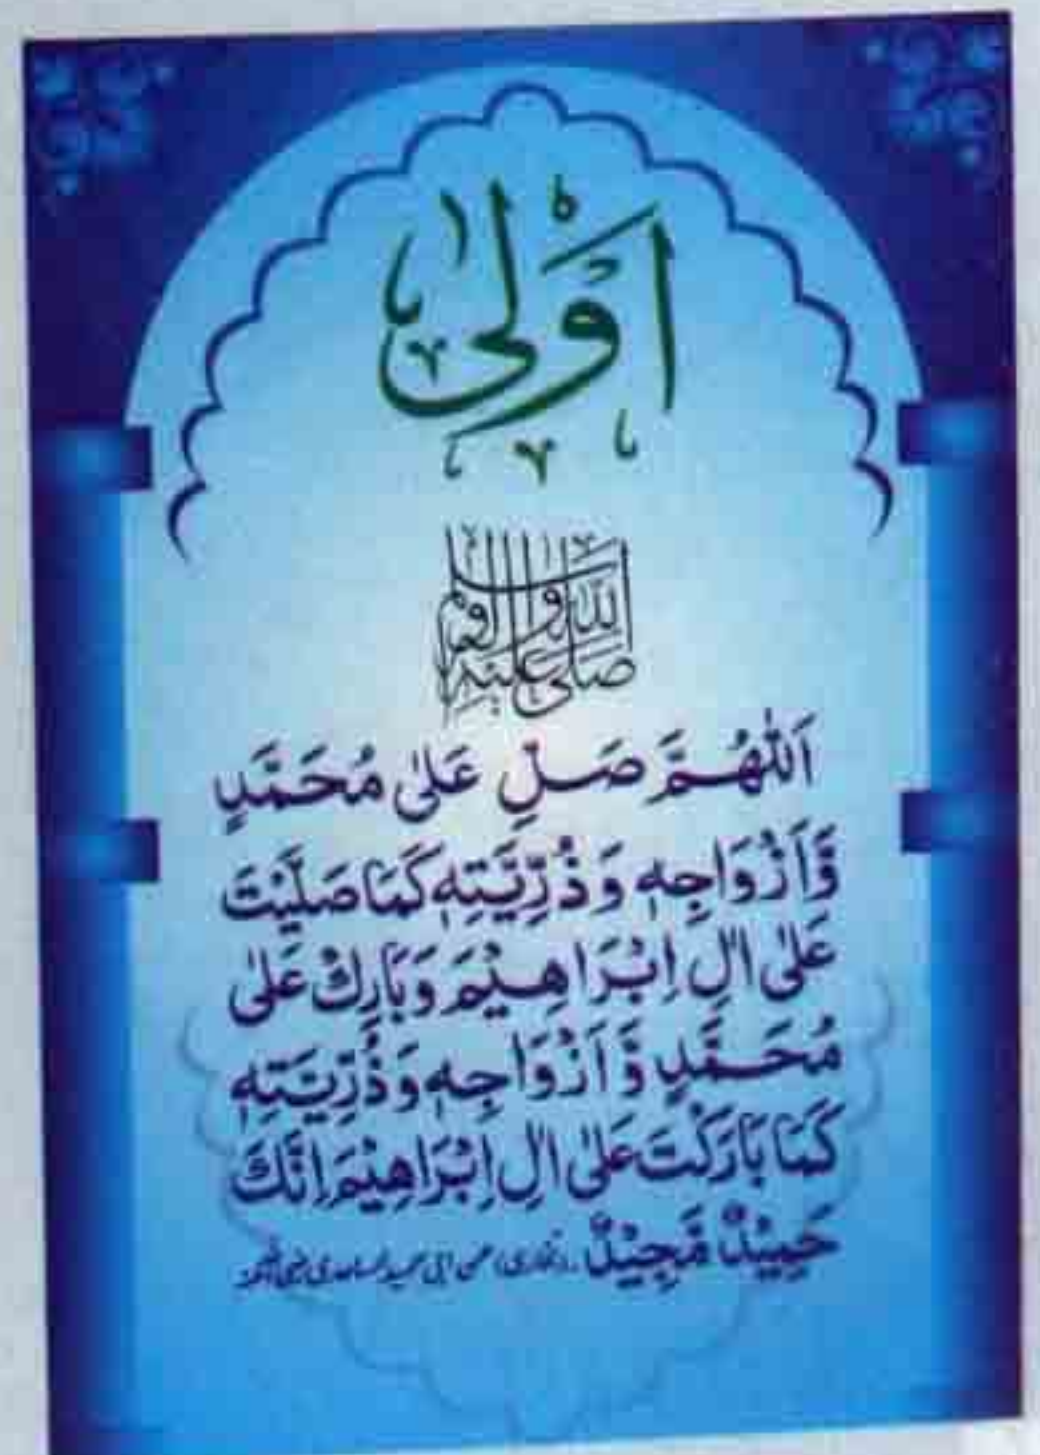 اَوْلٰى
صلى الله عليه واله وسلم
اَللّٰهُمَّ صَلِّ عَلٰى مُحَمَّدٍ
وَّاَزْوَاجِهٖ وَذُرِّيَّتِهٖ كَمَا صَلَّيْتَ
عَلٰى اٰلِ اِبْرَاهِيْمَ وَبَارِكْ عَلٰى
مُحَمَّدٍ وَّاَزْوَاجِهٖ وَذُرِّيَّتِهٖ
كَمَا بَارَكْتَ عَلٰى اٰلِ اِبْرَاهِيْمَ اِنَّكَ
حَمِيْدٌ مَّجِيْدٌ ۔ (بخاری) عن ابی حمید الساعدی رضی اللہ عنہ